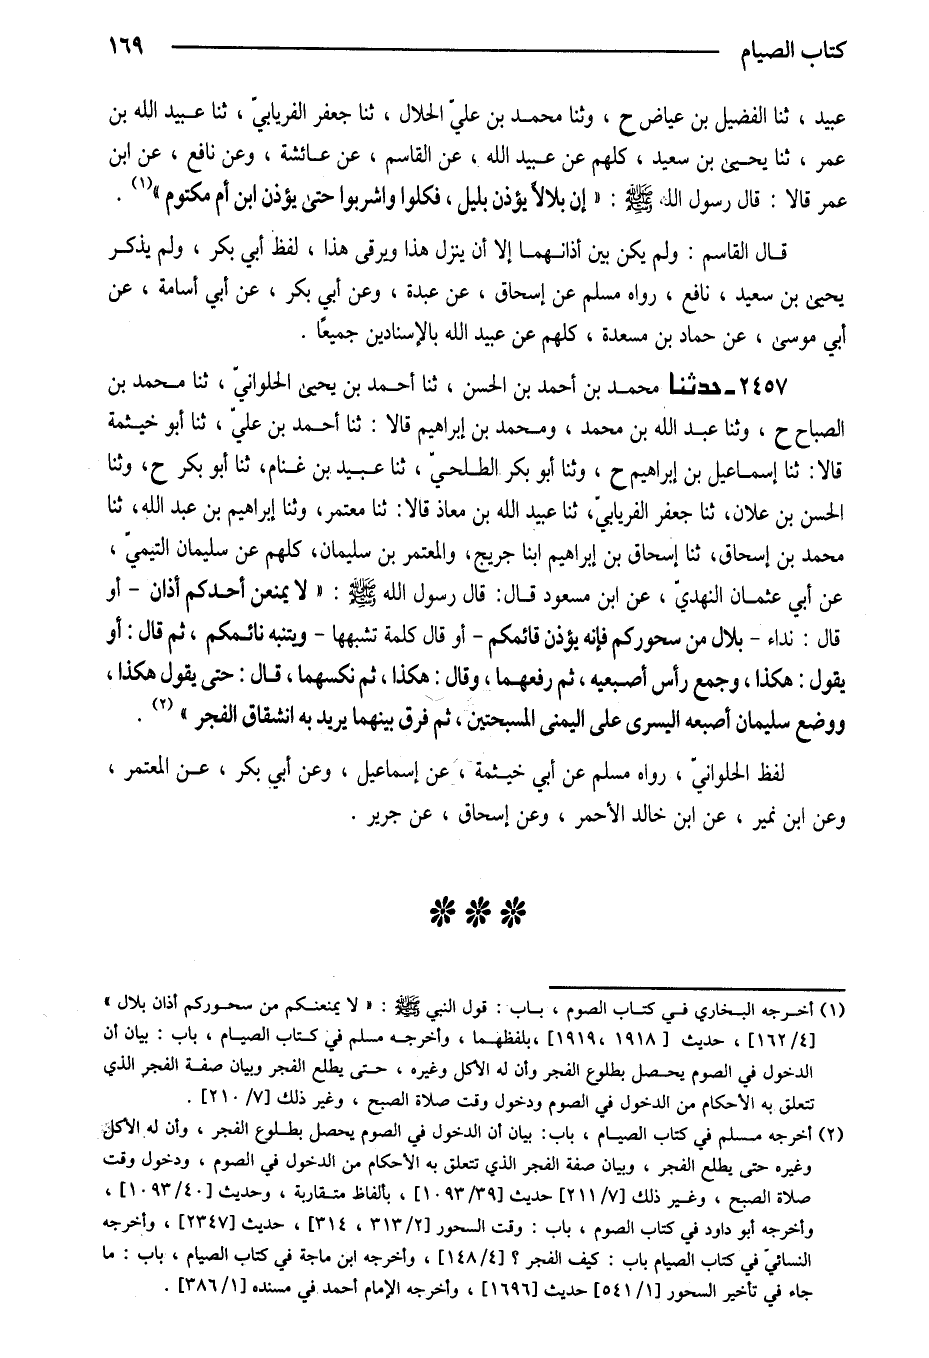 كتاب الصيام ١٦٩
عبيد ، ثنا الفضيل بن عياض ح ، وثنا محمد بن عليّ الخلال ، ثنا جعفر الفريابيّ ، ثنا عبيد الله بن
عمر ، ثنا يحيى بن سعيد ، كلهم عن عبيد الله ، عن القاسم ، عن عائشة ، وعن نافع ، عن ابن
عمر قالا : قال رسول الله ﷺ : « إن بلالاً يؤذن بليل ، فكلوا واشربوا حتى يؤذن ابن أم مكتوم »(١) .
قال القاسم : ولم يكن بين أذانهما إلا أن ينزل هذا ويرقى هذا ، لفظ أبي بكر ، ولم يذكر
يحيى بن سعيد ، نافع ، رواه مسلم عن إسحاق ، عن عبدة ، وعن أبي بكر ، عن أبي أسامة ، عن
أبي موسى ، عن حماد بن مسعدة ، كلهم عن عبيد الله بالإسنادين جميعًا .
٢٤٥٧ـ حدثنا محمد بن أحمد بن الحسن ، ثنا أحمد بن يحيى الحلوانيّ ، ثنا محمد بن
الصباح ح ، وثنا عبد الله بن محمد ، ومحمد بن إبراهيم قالا : ثنا أحمد بن عليّ ، ثنا أبو خيثمة
قالا : ثنا إسماعيل بن إبراهيم ح ، وثنا أبو بكر الطلحيّ ، ثنا عبيد بن غنام، ثنا أبو بكر ح، وثنا
الحسن بن علان، ثنا جعفر الفريابيّ، ثنا عبيد الله بن معاذ قالا: ثنا معتمر، وثنا إبراهيم بن عبد الله، ثنا
محمد بن إسحاق، ثنا إسحاق بن إبراهيم ابنا جريج، والمعتمر بن سليمان، كلهم عن سليمان التيميّ ،
عن أبي عثمان النهديّ ، عن ابن مسعود قال: قال رسول الله ﷺ : « لا يمنعن أحدكم أذان - أو
قال : نداء - بلال من سحوركم فإنه يؤذن قائمكم - أو قال كلمة تشبهها - ويتنبه نائمكم ، ثم قال : أو
يقول : هكذا ، وجمع رأس أصبعيه ، ثم رفعهما ، وقال : هكذا ، ثم نكسهما ، قال : حتى يقول هكذا ،
ووضع سليمان أصبعه اليسرى على اليمنى المسبحتين ، ثم فرق بينهما يريد به انشقاق الفجر »(٢) .
لفظ الحلوانيّ ، رواه مسلم عن أبي خيثمة ، عن إسماعيل ، وعن أبي بكر ، عن المعتمر ،
وعن ابن نمير ، عن ابن خالد الأحمر ، وعن إسحاق ، عن جرير .
(١) أخرجه البخاري في كتاب الصوم ، باب : قول النبي ﷺ : « لا يمنعنكم من سحوركم أذان بلال »
[١٦٢/٤] ، حديث [ ١٩١٨ ، ١٩١٩] ،بلفظهما ، وأخرجه مسلم في كتاب الصيام ، باب : بيان أن
الدخول في الصوم يحصل بطلوع الفجر وأن له الأكل وغيره ، حتى يطلع الفجر وبيان صفة الفجر الذي
تتعلق به الأحكام من الدخول في الصوم ودخول وقت صلاة الصبح ، وغير ذلك [٢١٠/٧] .
(٢) أخرجه مسلم في كتاب الصيام ، باب: بيان أن الدخول في الصوم يحصل بطلوع الفجر ، وأن له الأكل
وغيره حتى يطلع الفجر ، وبيان صفة الفجر الذي تتعلق به الأحكام من الدخول في الصوم ، ودخول وقت
صلاة الصبح ، وغير ذلك [٢١١/٧] حديث [١٠٩٣/٣٩] ، بألفاظ متقاربة ، وحديث [١٠٩٣/٤٠] ،
وأخرجه أبو داود في كتاب الصوم ، باب : وقت السحور [٣١٣/٢ ، ٣١٤] ، حديث [٢٣٤٧] ، وأخرجه
النسائيّ في كتاب الصيام باب : كيف الفجر ؟ [١٤٨/٤] ، وأخرجه ابن ماجة في كتاب الصيام ، باب : ما
جاء في تأخير السحور [٥٤١/١] حديث [١٦٩٦] ، وأخرجه الإمام أحمد في مسنده [٣٨٦/١] .